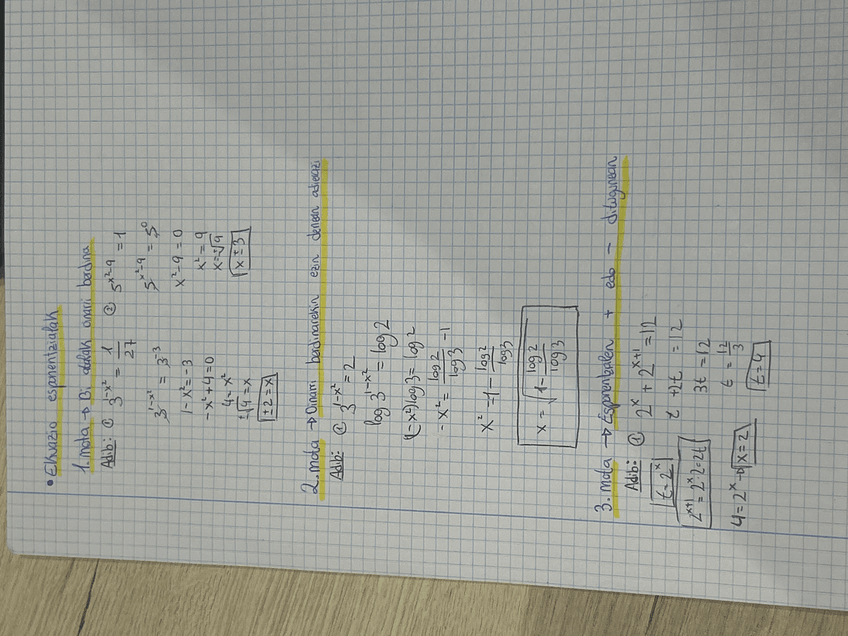 • Ekuazio esponentzialak
1. mota → Bi atalak oinarri berdina
Adib: ① 3^(1-x²) = 1/27
3^(1-x²) = 3^(-3)
1-x² = -3
-x²+4=0
4=x²
±√4 = x
±2=x
② 5^(x²-9) = 1
5^(x²-9) = 5⁰
x²-9=0
x²=9
x=±√9
x=±3
2. mota → Oinarri berdinarekin ezin denean adierazi
Adib: ① 3^(1-x²) = 2
log 3^(1-x²) = log 2
(1-x²) log 3 = log 2
-x² = log 2/log 3 - 1
x² = 1 - log 2/log 3
x = √(1 - log 2/log 3)
3. mota → Esponentzialen + edo - ditugunean
Adib: ① 2^x + 2^(x+1) = 12
t=2^x
t + 2t = 12
2^(x+1) = 2^x·2=2t
3t = 12
t = 12/3
t=4
4=2^x → x=2